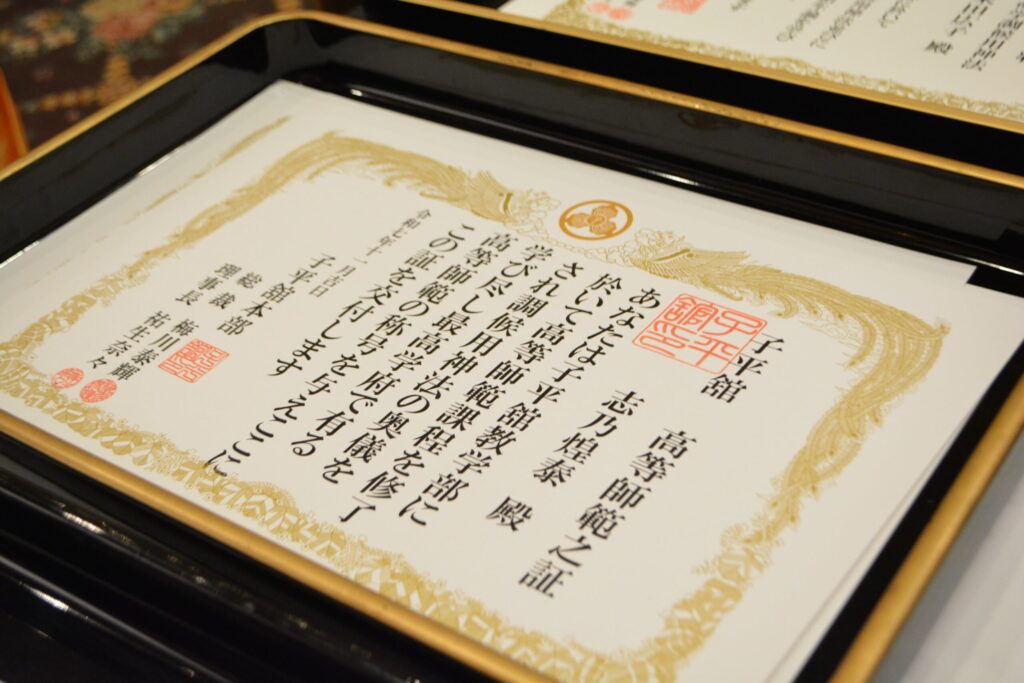 子平舘
高等師範之証
志乃煌泰 殿
あなたは子平舘教学部に
於いて高等師範課程を修了
され調候用神法の奥儀を
学び尽し最高学府で有る
高等師範の称号を与えここに
この証を交付します
令和七年十一月吉日
子平舘本部
総裁 梅川泰輝
理事長 祐生奈々
子平
舘印
殿